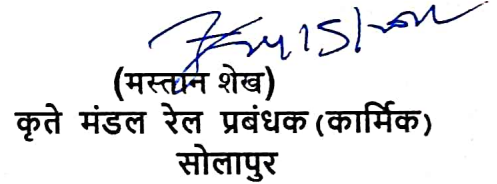 (मस्तान शेख)
कृते मंडल रेल प्रबंधक (कार्मिक)
सोलापुर